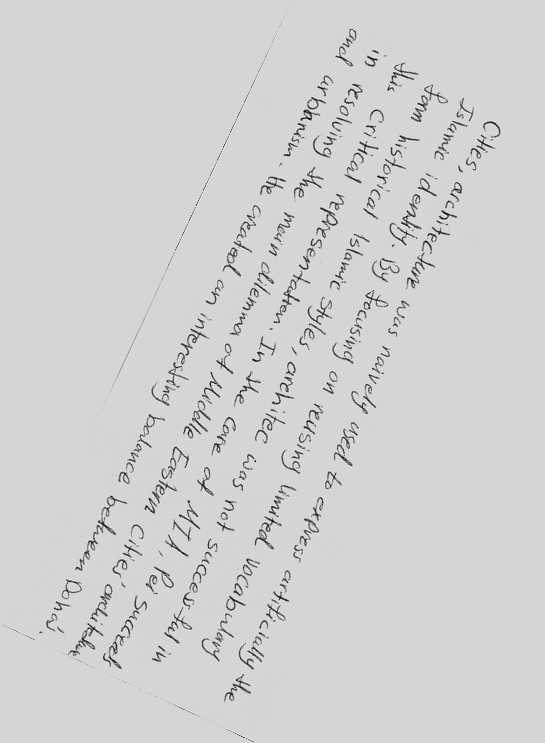 Cities, architecture was naively used to express artificially the
Islamic identity. By focusing on reusing limited vocabulary
form historical Islamic styles, architec was not successful in
this critical representation. In the case of MIA, Pei succeed
in resolving the main dilemma of Middle Eastern Cities' architecture
and urbanism. He created an interesting balance between Doha's